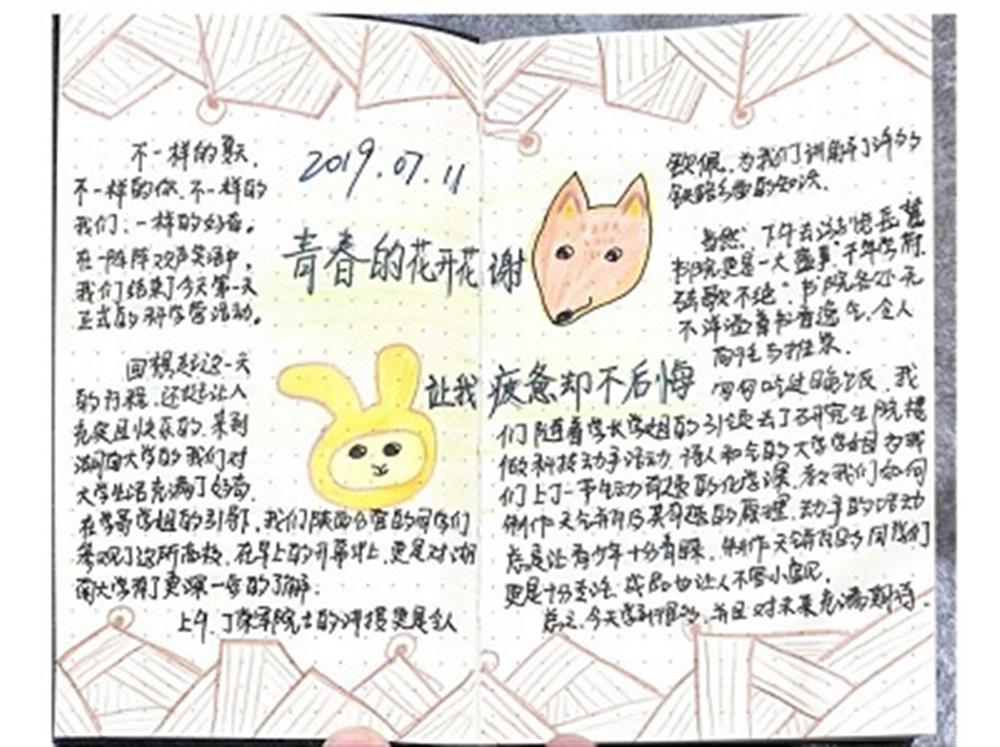 不一样的夏天,
不一样的你、不一样的
我们;一样的好奇。
在一阵阵欢声笑语中,
我们结束了今天第一天
正式的研学营活动。
回想起这一天
的行程,还是让人
充实且快乐的.来到
湖南大学的我们对
大学生活充满了好奇.
在学哥学姐的引导下,我们陕西分营的同学们
参观了这所高校.在早上的开幕式上,更是对湖
南大学有了更深一层的了解.
上午,丁荣军院士的讲授更是令人
2019.07.11
青春的花开花谢
让我疲惫却不后悔
钦佩.为我们讲解了许多的
铁路方面的知识.
当然,下午去游览岳麓
书院更是一大盛事"千年学府,
弦歌不绝".书院各处无
不洋溢着书香逸气.令人
匆匆吃过晚饭,我
们随着学长学姐的引领去了研究生院操
做科技动手活动.湖大的大学学姐为我
们上了一节生动有趣的化学课.教我们如何
制作天气瓶及其有趣的原理.动手的活动
总是让青少年十分青睐.制作天气瓶的同学们
更是十分专注.成品也让人不
总之,今天学到很多,并且对未来充满期待.